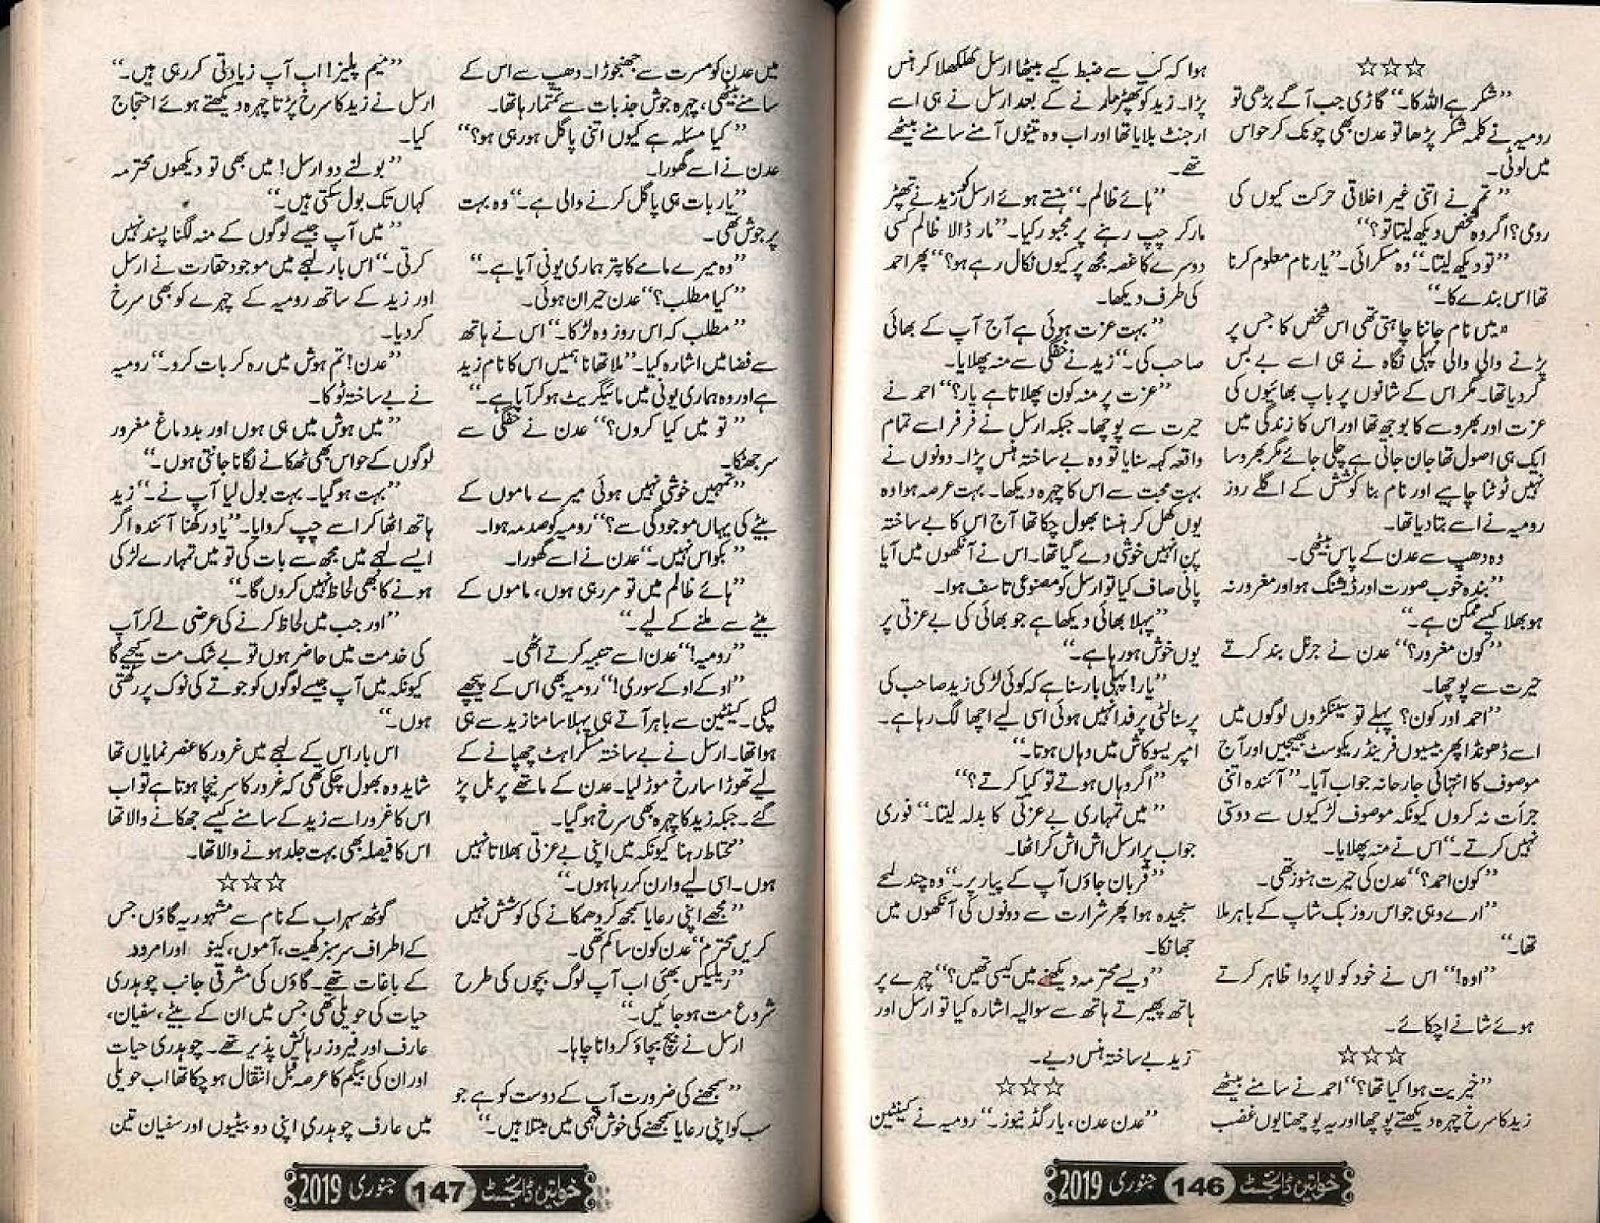 ☆☆☆
”شکر ہے اللہ کا۔“ گاڑی جب آگے بڑھی تو
رومیہ نے کلمہ شکر پڑھا تو عدن بھی چونک کر حواس
میں لوٹی۔
”تم نے اتنی غیر اخلاقی حرکت کیوں کی
رومی؟ اگر وہ شخص دیکھ لیتا تو؟“
”تو دیکھ لیتا۔“ وہ مسکرائی۔ ”یار نام معلوم کرنا
تھا اس بندے کا۔“
”میں نام جاننا چاہتی تھی اس شخص کا جس پر
پڑنے والی والی پہلی نگاہ نے ہی اسے بے بس
کردیا تھا۔ مگر اس کے شانوں پر باپ بھائیوں کی
عزت اور بھروسے کا بوجھ تھا اور اس کا زندگی میں
ایک ہی اصول تھا جان جاتی ہے چلی جائے مگر بھروسا
نہیں ٹوٹنا چاہیے اور نام بنا کوشش کے اگلے روز
رومیہ نے اسے بتا دیا تھا۔
وہ دھپ سے عدن کے پاس بیٹھی۔
”بندہ خوب صورت اور ڈیشنگ ہو اور مغرور نہ
ہو بھلا کیسے ممکن ہے۔“
”کون مغرور؟“ عدن نے جرنل بند کرتے
حیرت سے پوچھا۔
”احمد اور کون؟ پہلے تو سینکڑوں لوگوں میں
اسے ڈھونڈا پھر بیسیوں فرینڈ ریکوسٹ بھیجیں اور آج
موصوف کا انتہائی جارحانہ جواب آیا۔ ”آئندہ اتنی
جرأت نہ کروں کیونکہ موصوف لڑکیوں سے دوستی
نہیں کرتے۔“ اس نے منہ پھلایا۔
”کون احمد؟“ عدن کی حیرت ہنوز تھی۔
”ارے وہی جو اس روز بک شاپ کے باہر ملا
تھا۔“
”اوہ!“ اس نے خود کو لاپروا ظاہر کرتے
ہوئے شانے اچکائے۔
☆☆☆
”خیریت ہوا کیا تھا؟“ احمد نے سامنے بیٹھے
زید کا سرخ چہرہ دیکھتے پوچھا اور یہ پوچھنا یوں غضب
ہوا کہ کب سے ضبط کیے بیٹھا ارسل کھلکھلا کر ہنس
پڑا۔ زید کو تھپڑ مارنے کے بعد ارسل نے ہی اسے
ارجنٹ بلایا تھا اور اب وہ تینوں آمنے سامنے بیٹھے
تھے۔
”ہائے ظالم۔“ ہنستے ہوئے ارسل کو زید نے تھپڑ
مار کر چپ رہنے پر مجبور کیا۔ ”مار ڈالا ظالم کسی
دوسرے کا غصہ مجھ پر کیوں نکال رہے ہو؟“ پھر احمد
کی طرف دیکھا۔
”بہت عزت ہوئی ہے آج آپ کے بھائی
صاحب کی۔“ زید نے خفگی سے منہ پھلایا۔
”عزت پر منہ کون پھلاتا ہے یار؟“ احمد نے
حیرت سے پوچھا۔ جبکہ ارسل نے فرفر اسے تمام
واقعہ کہہ سنایا تو وہ بے ساختہ ہنس پڑا۔ دونوں نے
بہت محبت سے اس کا چہرہ دیکھا۔ بہت عرصہ ہوا وہ
یوں کھل کر ہنسنا بھول چکا تھا آج اس کا بے ساختہ
پن انہیں خوشی دے گیا تھا۔ اس نے آنکھوں میں آیا
پانی صاف کیا تو ارسل کو مصنوعی تاسف ہوا۔
”پہلا بھائی دیکھا ہے جو بھائی کی بے عزتی پر
یوں خوش ہورہا ہے۔“
”یار! پہلی بار سنا ہے کہ کوئی لڑکی زید صاحب کی
پرسنالٹی پر فدا نہیں ہوئی اسی لیے اچھا لگ رہا ہے۔
امپریسو کاش میں وہاں ہوتا۔“
”اگر وہاں ہوتے تو کیا کرتے؟“
”میں تمہاری بے عزتی کا بدلہ لیتا۔“ فوری
جواب پر ارسل اش اش کر اٹھا۔
”قربان جاؤں آپ کے پیار پر۔“ وہ چند لمحے
سنجیدہ ہوا پھر شرارت سے دونوں کی آنکھوں میں
جھانکا۔
”ویسے محترمہ دیکھنے میں کیسی تھیں؟“ چہرے پر
ہاتھ پھیرتے ہاتھ سے سوالیہ اشارہ کیا تو ارسل اور
زید بے ساختہ ہنس دیے۔
☆☆☆
”عدن عدن، یار گڈ نیوز۔“ رومیہ نے کینٹین
خواتین ڈائجسٹ 146 جنوری 2019
میں عدن کو مسرت سے جھنجوڑا۔ دھپ سے اس کے
سامنے بیٹھی، چہرہ جوش جذبات سے تمتما رہا تھا۔
”کیا مسلہ ہے کیوں اتنی پاگل ہورہی ہو؟“
عدن نے اسے گھورا۔
”یار بات ہی پاگل کرنے والی ہے۔“ وہ بہت
پرجوش تھی۔
”وہ میرے مامے کا پتر ہماری یونی آیا ہے۔“
”کیا مطلب؟“ عدن حیران ہوئی۔
”مطلب کہ اس روز وہ لڑکا۔“ اس نے ہاتھ
سے فضا میں اشارہ کیا۔ ”ملا تھا نا ہمیں اس کا نام زید
ہے اور وہ ہماری یونی میں مائیگریٹ ہوکر آیا ہے۔“
”تو میں کیا کروں؟“ عدن نے خفگی سے
سر جھٹکا۔
”تمہیں خوشی نہیں ہوئی میرے ماموں کے
بیٹے کی یہاں موجودگی سے؟“ رومیہ کو صدمہ ہوا۔
”بکواس نہیں۔“ عدن نے اسے گھورا۔
”ہائے ظالم میں تو مر رہی ہوں، ماموں کے
بیٹے سے ملنے کے لیے۔“
”رومیہ!“ عدن اسے تنبیہ کرتے اٹھی۔
”اوکے اوکے سوری!“ رومیہ بھی اس کے پیچھے
لپکی۔ کینٹین سے باہر آتے ہی پہلا سامنا زید سے ہی
ہوا تھا۔ ارسل نے بے ساختہ مسکراہٹ چھپانے کے
لیے تھوڑا سا رخ موڑ لیا۔ عدن کے ماتھے پر بل پڑ
گئے۔ جبکہ زید کا چہرہ بھی سرخ ہوگیا۔
”محتاط رہنا کیونکہ میں اپنی بے عزتی بھلاتا نہیں
ہوں۔ اسی لیے وارن کررہا ہوں۔“
”مجھے اپنی رعایا سمجھ کر دھمکانے کی کوشش نہیں
کریں محترم“ عدن کون سا کم تھی۔
”ریلیکس بھئی اب آپ لوگ بچوں کی طرح
شروع مت ہوجائیں۔“
ارسل نے بیچ بچاؤ کروانا چاہا۔
”سمجھنے کی ضرورت آپ کے دوست کو ہے جو
سب کو اپنی رعایا سمجھنے کی خوش فہمی میں مبتلا ہیں۔“
”میم پلیز! اب آپ زیادتی کررہی ہیں۔“
ارسل نے زید کا سرخ پڑتا چہرہ دیکھتے ہوئے احتجاج
کیا۔
”بولنے دو ارسل! میں بھی تو دیکھوں محترمہ
کہاں تک بول سکتی ہیں۔“
”میں آپ جیسے لوگوں کے منہ لگنا پسند نہیں
کرتی۔“ اس بار لہجے میں موجود حقارت نے ارسل
اور زید کے ساتھ رومیہ کے چہرے کو بھی سرخ
کردیا۔
”عدن! تم ہوش میں رہ کر بات کرو۔“ رومیہ
نے بے ساختہ ٹوکا۔
”میں ہوش میں ہی ہوں اور بددماغ مغرور
لوگوں کے حواس بھی ٹھکانے لگانا جانتی ہوں۔“
”بہت ہوگیا۔ بہت بول لیا آپ نے۔“ زید
ہاتھ اٹھا کر اسے چپ کروایا۔ ”یاد رکھنا آئندہ اگر
ایسے لہجے میں مجھ سے بات کی تو میں تمہارے لڑکی
ہونے کا بھی لحاظ نہیں کروں گا۔“
”اور جب میں لحاظ کرنے کی عرضی لے کر آپ
کی خدمت میں حاضر ہوں تو بے شک مت کیجیے گا
کیونکہ میں آپ جیسے لوگوں کو جوتے کی نوک پر رکھتی
ہوں۔“
اس بار اس کے لہجے میں غرور کا عنصر نمایاں تھا
شاید وہ بھول چکی تھی کہ غرور کا سر نیچا ہوتا ہے تو اب
اس کا غرور اسے زید کے سامنے کیسے جھکانے والا تھا
اس کا فیصلہ بھی بہت جلد ہونے والا تھا۔
☆☆☆
گوٹھ سہراب کے نام سے مشہور یہ گاؤں جس
کے اطراف سرسبز کھیت، آموں، کینو اور امرود
کے باغات تھے۔ گاؤں کی مشرقی جانب چوہدری
حیات کی حویلی تھی جس میں ان کے بیٹے، سفیان،
عارف اور فیروز رہائش پذیر تھے۔ چوہدری حیات
اور ان کی بیگم کا عرصہ قبل انتقال ہوچکا تھا اب حویلی
میں عارف چوہدری اپنی دو بیٹیوں اور سفیان تین
خواتین ڈائجسٹ 147 جنوری 2019